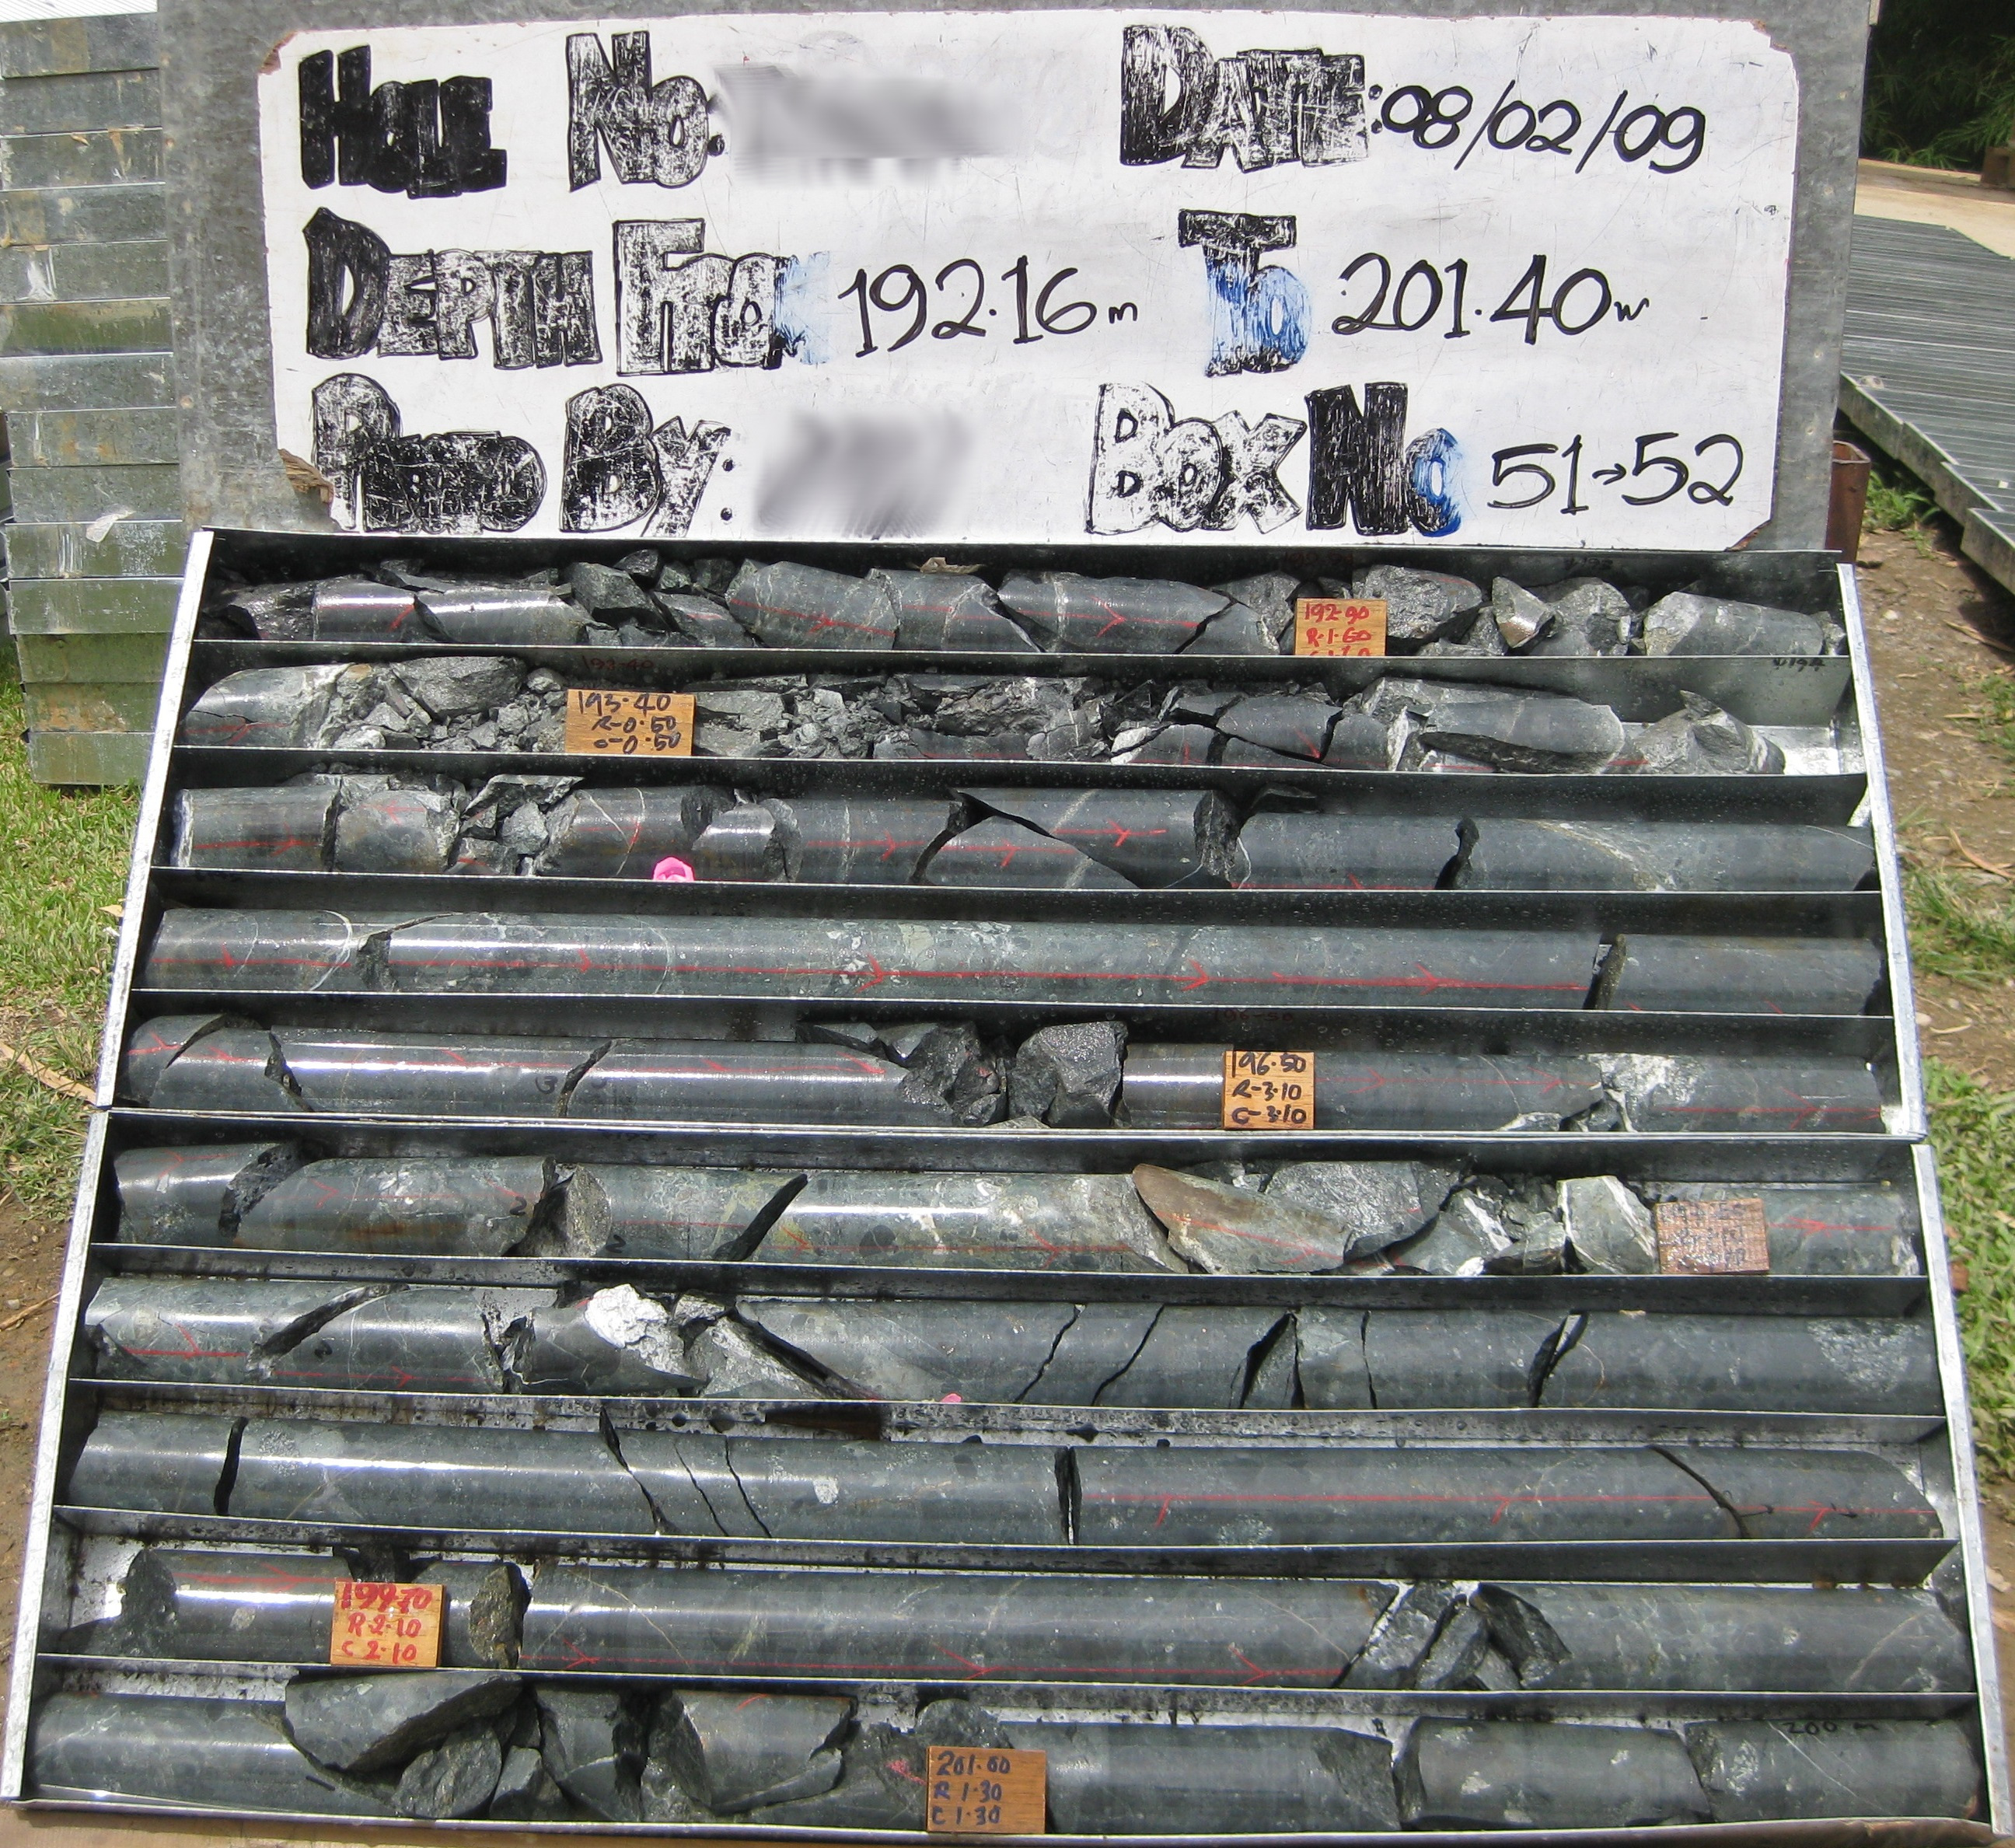 HOLE No: DATE: 08/02/09
DEPTH From 192.16m To 201.40m
PHOTO By: Box No 51→52
192.90
R-1.60
193.40
193.40
R-0.50
C-0.50
196.50
R-3.10
C-3.10
2
2
199.70
R-2.10
C 2.10
200 m
201.00
R 1.30
C 1.30